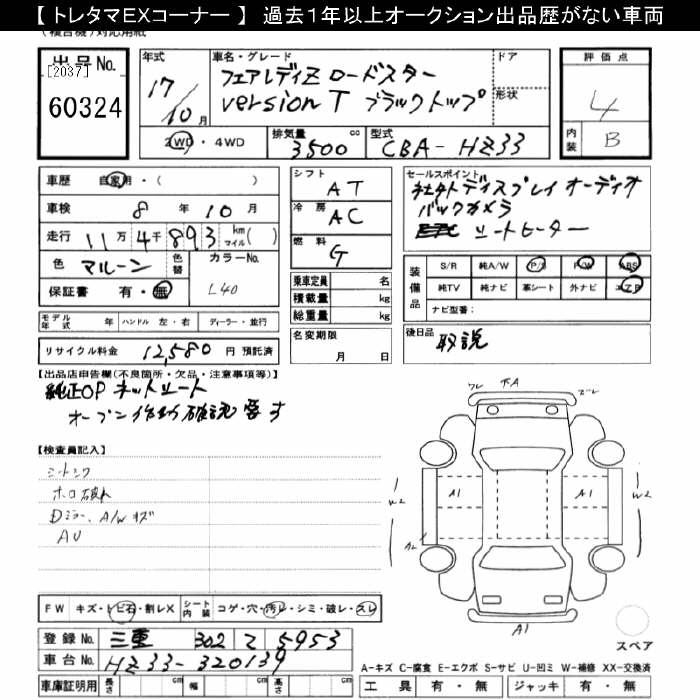 【 トレタマEXコーナー 】 過去1年以上オークション出品歴がない車両
(複合機)対応用紙
出品No.
[2037]
60324
年式
17/10月
車名・グレード
フェアレディZ ロードスター
version T ブラックトップ
ドア
形状
評価点
4
内装
B
2WD・4WD
排気量
3500
cc
型式
CBA-HZ33
車歴 自家用・( )
車検 8 年 10 月
走行 11万 4千 893 km マイル( )
色 マルーン
色替
カラーNo.
L40
保証書 有・無
モデル年式 年 ハンドル 左・右 ディーラー・並行
リサイクル料金 12,580 円 預託済
シフト
AT
冷房
AC
燃料
G
乗車定員 名
積載量 kg
総重量 kg
名変期限
月 日
セールスポイント
社外ディスプレイオーディオ
バックカメラ
シートヒーター
装備品
S/R 純A/W P/S P/W ABS
純TV 純ナビ 革シート 外ナビ エアB
ナビ型番:
後日品
取説
【出品店申告欄(不良箇所・欠品・注意事項等)】
純正OP ネットシート
オープン作動確認要す
【検査員記入】
ホロ破れ
Dミラー、A/Wキズ
AU
FW キズ・トビ石・割レX シート内装 コゲ・穴・汚レ・シミ・破レ・スレ
登録No. 三重 302 て 5953
車台No. HZ33-320139
車庫証明用 長さ cm 幅 cm 高さ cm
FA
W2
A1
A1
W2
A2
A1
スペア
A-キズ C-腐食 E-エクボ S-サビ U-凹ミ W-補修 XX-交換済
工具 有・無 ジャッキ 有・無